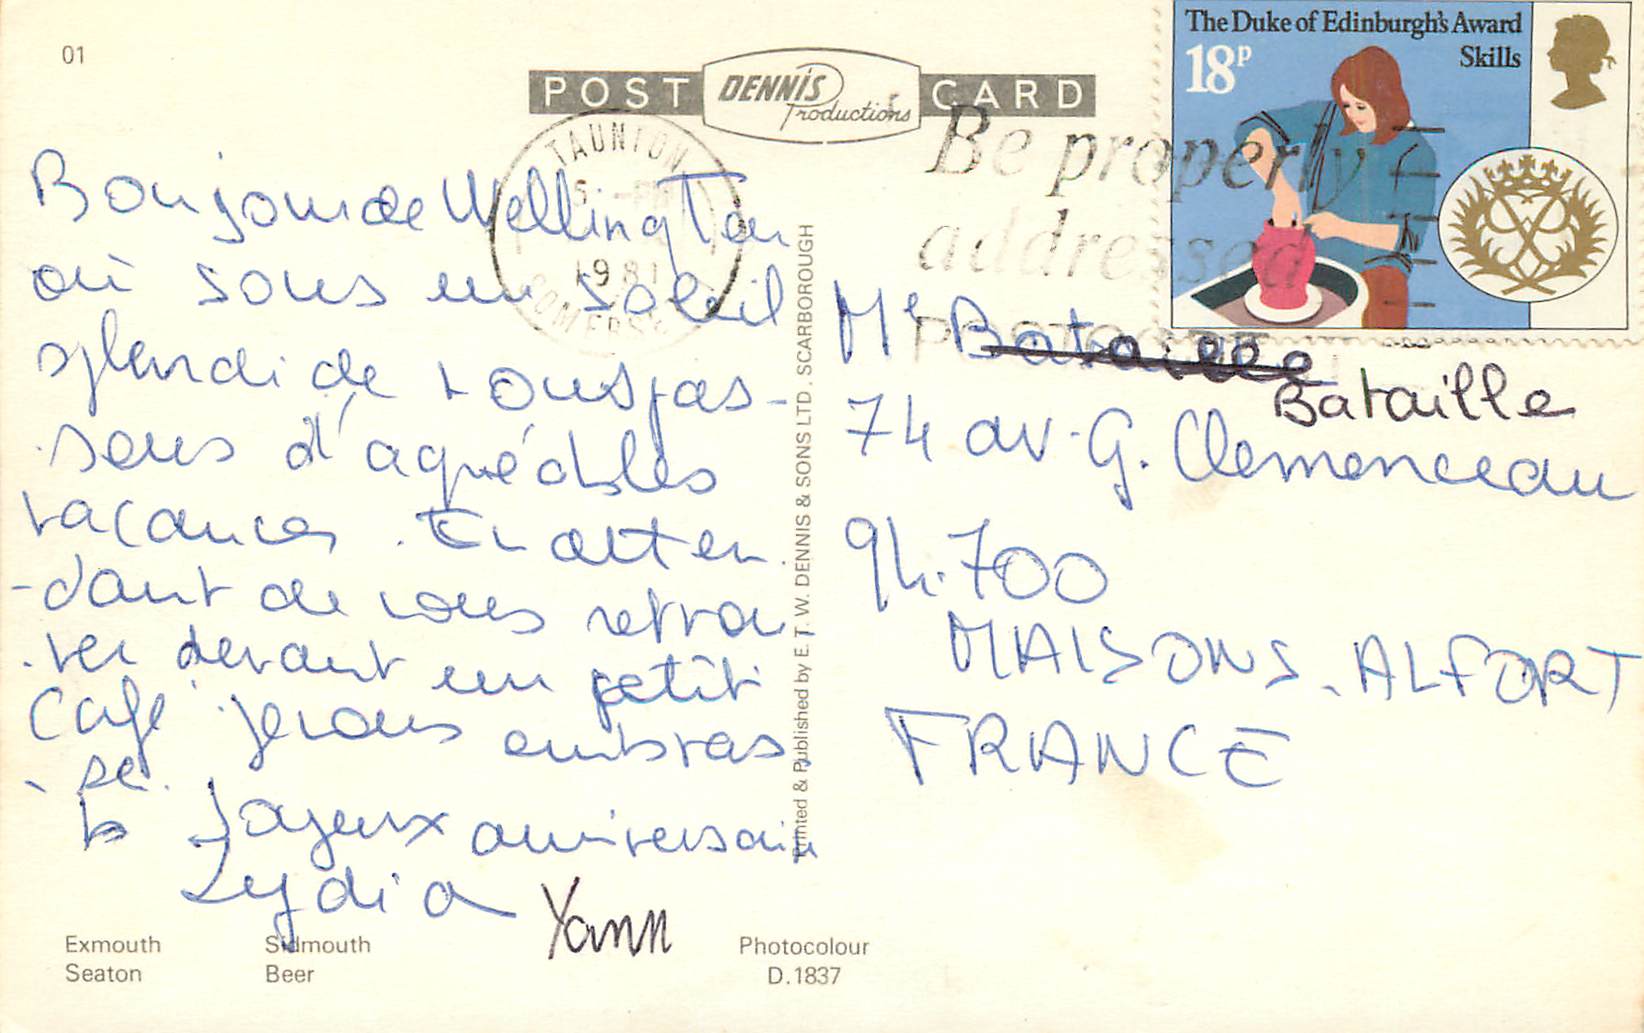 01
POST DENNIS Productions CARD
The Duke of Edinburgh's Award
Skills
18P
TAUNTON
5 - PM
1981
SOMERSET
Be properly
addressed
Bonjour de Wellington
où sous un soleil
splendide nous pas-
sons d'agréables
vacances. En atten
-dant de vous retrou
ver devant un petit
café je vous embras
- se.
Joyeux anniversaire
Lydia Yann
Mr Bataille
Bataille
74 av. G. Clemenceau
94.700
MAISONS. ALFORT
FRANCE
Printed & Published by E. T. W. DENNIS & SONS LTD. SCARBOROUGH
Exmouth Sidmouth
Seaton Beer
Photocolour
D.1837